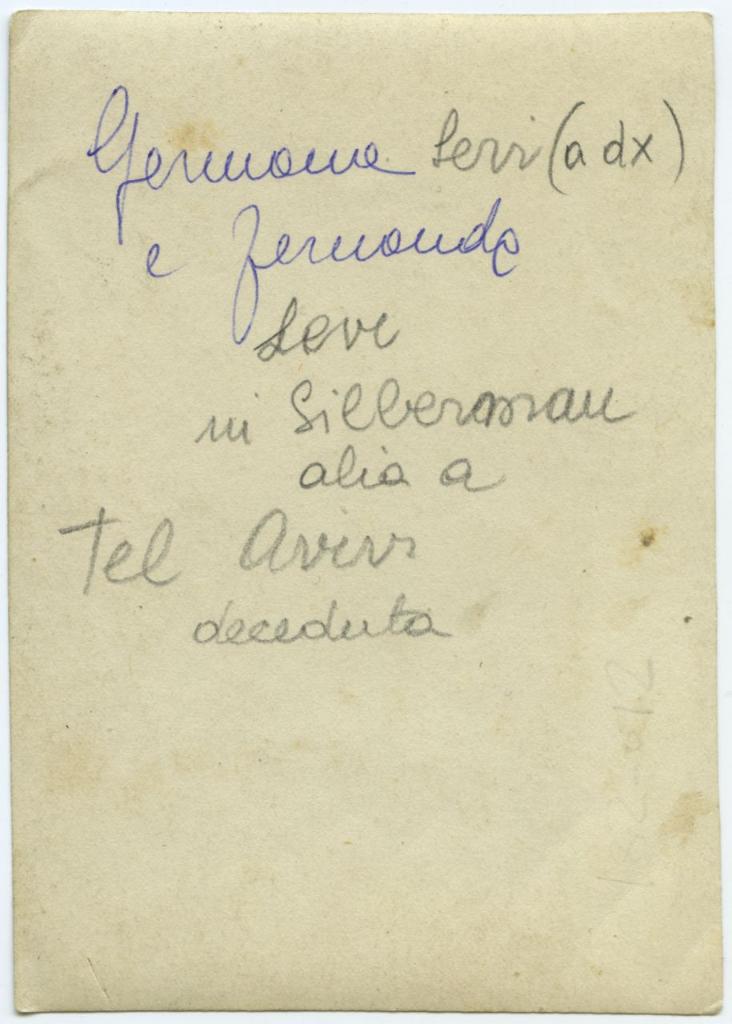 Germana Servi (a dx)
e Fernanda
Levi
in Silberman
alia a
Tel Aviv
deceduta